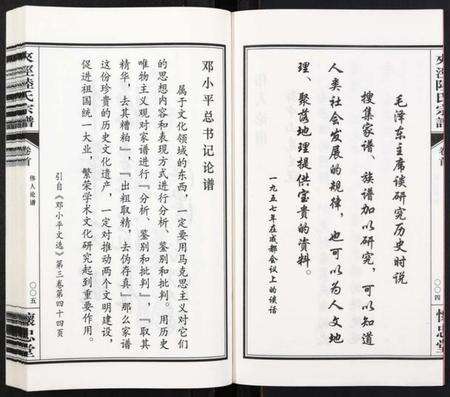 毛泽东主席谈研究历史时说
搜集家谱、族谱加以研究，可以知道
人类社会发展的规律，也可以为人文地
理、聚落地理提供宝贵的资料。
一九五七年在成都会议上的谈话
夹泾陆氏宗谱
卷首
〇〇四
怀忠堂
邓小平总书记论谱
属于文化领域的东西，一定要用马克思主义对它们
的思想内容和表现方式进行分析、鉴别和批判。用历史
唯物主义观对家谱进行「分析、鉴别和批判」，「取其
精华，去其糟粕」，「出粗取精，去伪存真」那么家谱
这份珍贵的历史文化遗产，一定对推动两个文明建设，
促进祖国统一大业，繁荣学术文化研究起到重要作用。
引自《邓小平文选》第三卷第四十四页
夾涇陸氏宗譜
卷首
伟人论谱
〇〇五
懷忠堂